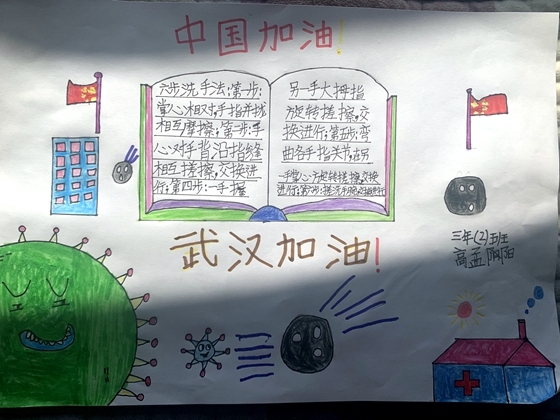 中国加油!
六步洗手法:第一步:
掌心相对,手指并拢
相互摩擦;第一步:手
心对手背沿指缝
相互搓擦,交换进
行;第四步:一手握
另一手大拇指
旋转搓擦,交
换进行;第五步:弯
曲各手指关节,在另
一手掌心旋转搓擦,交换
进行;第六步:搓洗手腕,交换进行
武汉加油!
三年(2)班
高孟阳